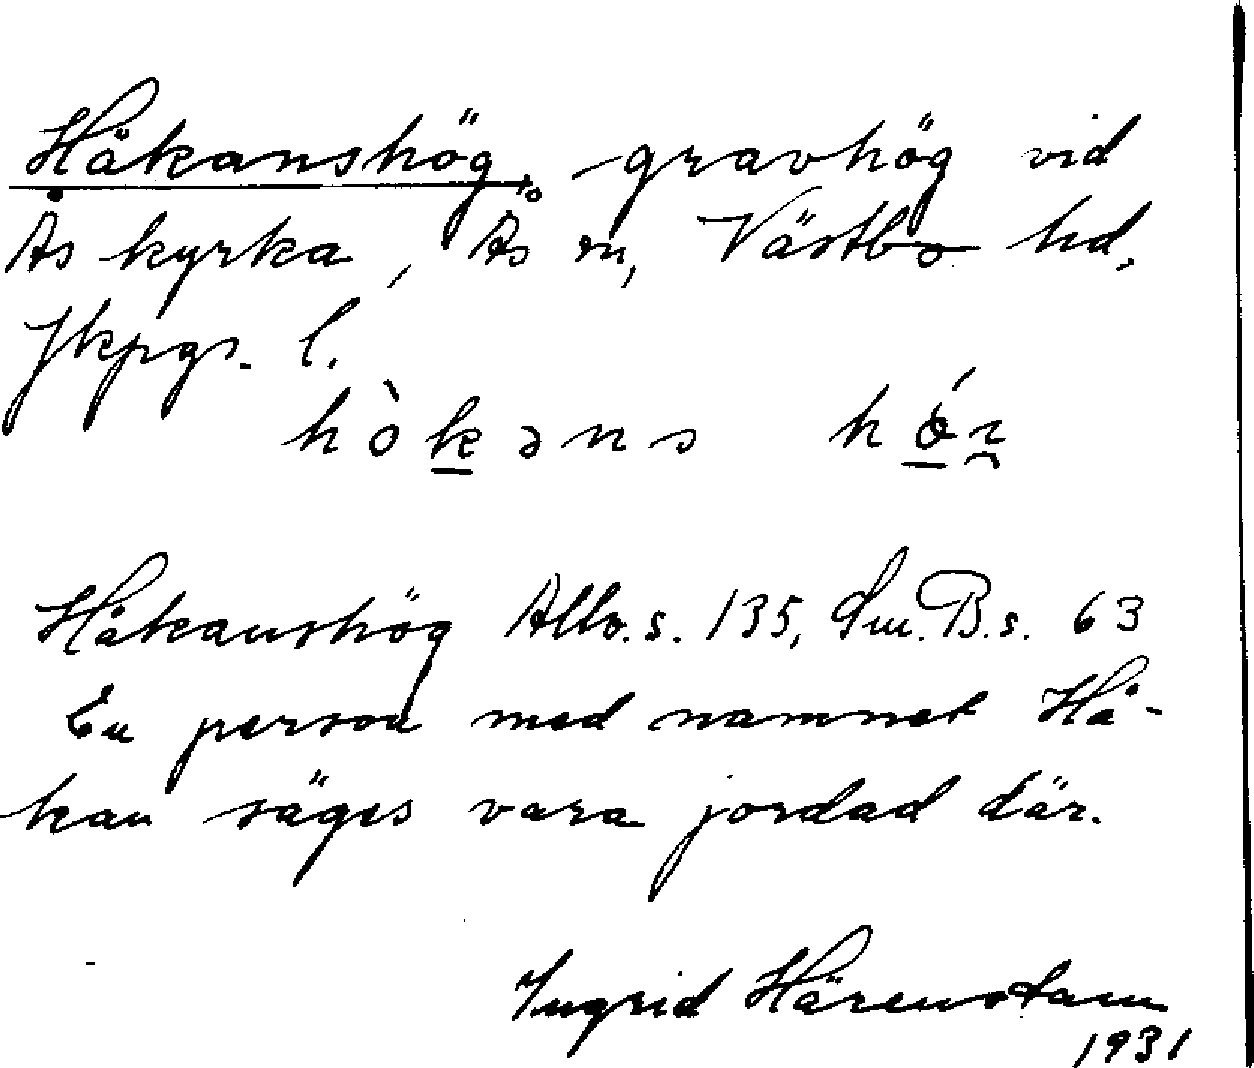 Håkanshög, gravhög vid
Ås kyrka, Ås sn, Västbo hd,
Jkpgs. l.
hòkəns hǿɪ
Håkanshög Allb. s. 135, Sm. B. s. 63
En person med namnet Hå-
kan säges vara jordad där.
Ingrid Härenstam
1931